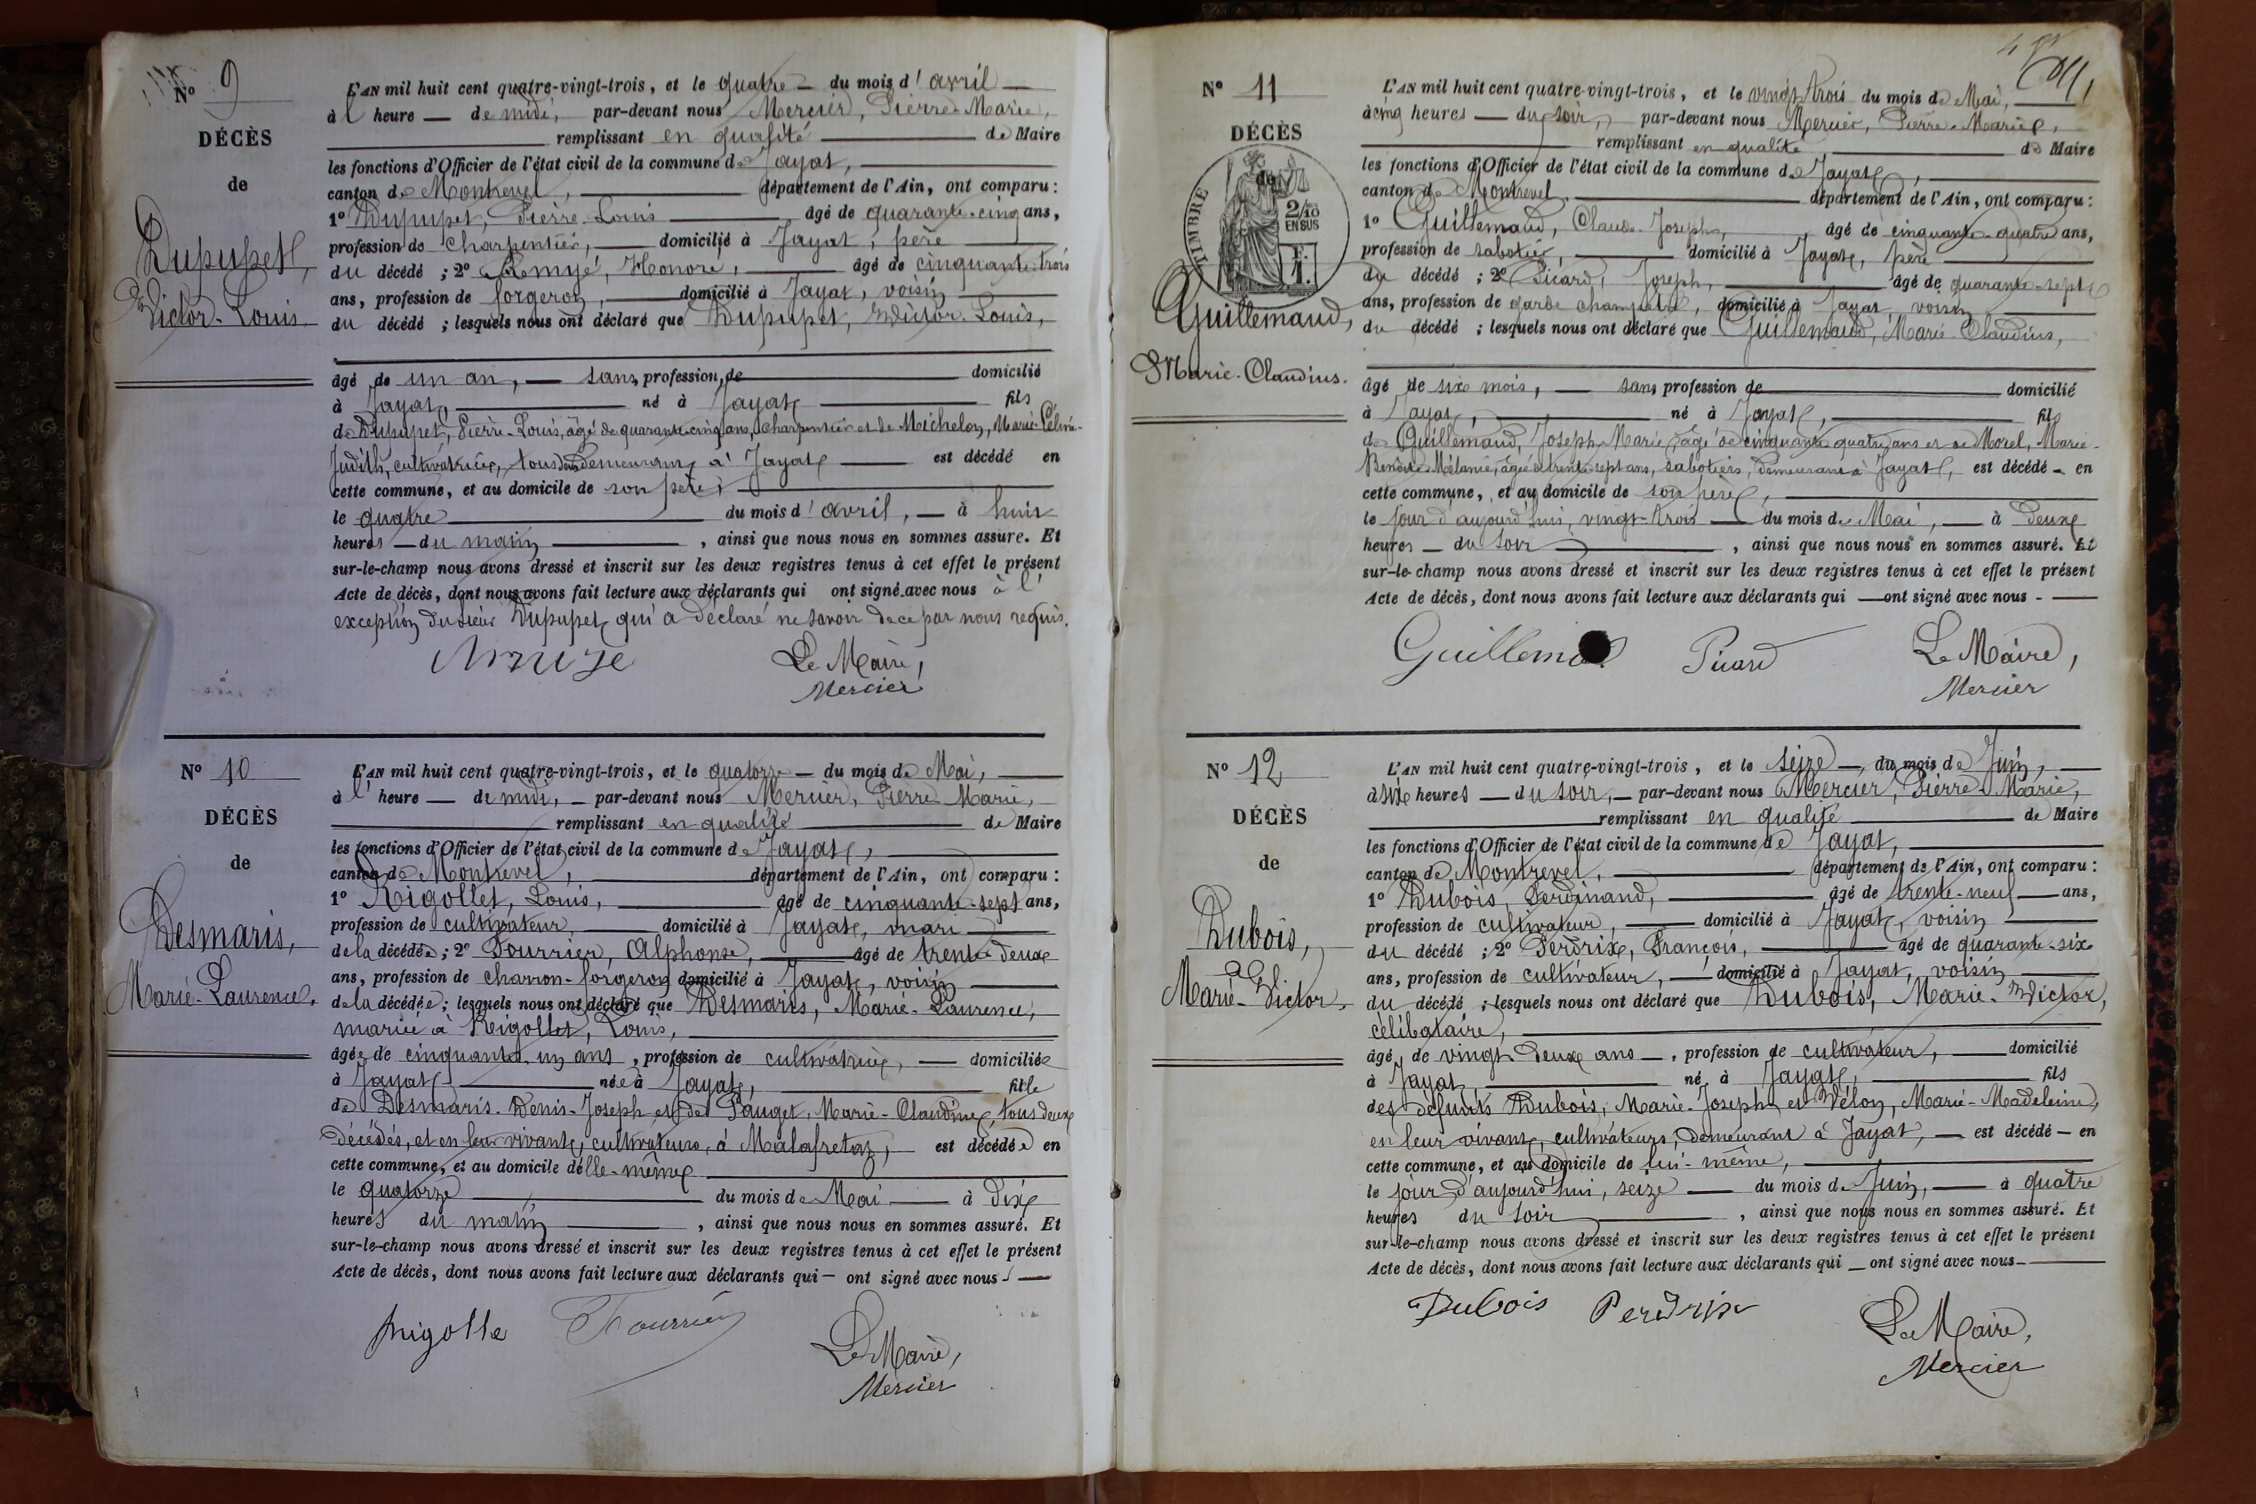 N° 9
DÉCÈS
de
Dupupet,
Victor-Louis.
L'AN mil huit cent quatre-vingt-trois, et le quatre du mois d'avril
à l'heure de midi, par-devant nous Mercier, Pierre-Marie,
remplissant en qualité de Maire
les fonctions d'Officier de l'état civil de la commune de Jayat,
canton de Montrevel, département de l'Ain, ont comparu :
1° Dupupet, Pierre-Louis âgé de quarante-cinq ans,
profession de charpentier, domicilié à Jayat, père
du décédé ; 2° Honoré, âgé de cinquante-trois
ans, profession de forgeron, domicilié à Jayat, voisin
du décédé ; lesquels nous ont déclaré que Dupupet, Victor-Louis,
âgé de un an, sans profession de domicilié
à Jayat, né à Jayat fils
de Dupupet, Pierre-Louis, âgé de quarante-cinq ans, charpentier et de Michelon, Marie-Célinie-
Judith, cultivatrice, tous deux demeurant à Jayat est décédé en
cette commune, et au domicile de son père,
le quatre du mois d'avril, à huit
heures du matin, ainsi que nous nous en sommes assuré. Et
sur-le-champ nous avons dressé et inscrit sur les deux registres tenus à cet effet le présent
Acte de décès, dont nous avons fait lecture aux déclarants qui ont signé avec nous à l'
exception du sieur Dupupet qui a déclaré ne savoir de ce par nous requis.
Le Maire,
Mercier
N° 10
DÉCÈS
de
Desmaris,
Marie-Laurence.
L'AN mil huit cent quatre-vingt-trois, et le quatorze du mois de Mai,
à l'heure de midi, par-devant nous Mercier, Pierre-Marie,
remplissant en qualité de Maire
les fonctions d'Officier de l'état civil de la commune de Jayat,
canton de Montrevel, département de l'Ain, ont comparu :
1° Rigollet, Louis, âgé de cinquante-sept ans,
profession de cultivateur, domicilié à Jayat, mari
de la décédée ; 2° Fourrier, Alphonse, âgé de trente-deux
ans, profession de charron-forgeron domicilié à Jayat, voisin
de la décédée ; lesquels nous ont déclaré que Desmaris, Marie-Laurence,
mariée à Rigollet, Louis,
âgée de cinquante-un ans, profession de cultivatrice, domiciliée
à Jayat née à Jayat, fille
de Desmaris Denis-Joseph et de Pauget, Marie-Claudine, tous deux
décédés, et en leur vivant, cultivateurs à Malafretaz, est décédée en
cette commune, et au domicile d'elle-même
le quatorze du mois de Mai à dix
heures du matin, ainsi que nous nous en sommes assuré. Et
sur-le-champ nous avons dressé et inscrit sur les deux registres tenus à cet effet le présent
Acte de décès, dont nous avons fait lecture aux déclarants qui ont signé avec nous.
Rigolle Fourrier
Le Maire,
Mercier
N° 11
DÉCÈS
de
TIMBRE
2/10
EN SUS
Guillemaud,
Marie-Claudius.
L'AN mil huit cent quatre-vingt-trois, et le vingt-trois du mois de Mai,
à cinq heures du soir, par-devant nous Mercier, Pierre-Marie,
remplissant en qualité de Maire
les fonctions d'Officier de l'état civil de la commune de Jayat,
canton de Montrevel, département de l'Ain, ont comparu :
1° Guillemaud, Claude-Joseph, âgé de cinquante-quatre ans,
profession de sabotier, domicilié à Jayat, père
du décédé ; 2° Picard, Joseph, âgé de quarante-sept
ans, profession de garde champêtre, domicilié à Jayat, voisin
du décédé ; lesquels nous ont déclaré que Guillemaud, Marie-Claudius,
âgé de six mois, sans profession de domicilié
à Jayat, né à Jayat, fils
de Guillemaud, Joseph-Marie, âgé de cinquante-quatre ans et de Morel, Marie-
Benoite-Mélanie, âgée de trente-sept ans, sabotiers, demeurant à Jayat, est décédé en
cette commune, et au domicile de son père,
le jour d'aujourd'hui, vingt-trois du mois de Mai, à deux
heures du soir, ainsi que nous nous en sommes assuré. Et
sur-le-champ nous avons dressé et inscrit sur les deux registres tenus à cet effet le présent
Acte de décès, dont nous avons fait lecture aux déclarants qui ont signé avec nous
Picard
Le Maire,
Mercier
N° 12
DÉCÈS
de
Dubois,
Marie-Victor.
L'AN mil huit cent quatre-vingt-trois, et le seize, du mois de Juin,
à six heures du soir, par-devant nous Mercier, Pierre-Marie,
remplissant en qualité de Maire
les fonctions d'Officier de l'état civil de la commune de Jayat,
canton de Montrevel, département de l'Ain, ont comparu :
1° Dubois, Ferdinand, âgé de trente-neuf ans,
profession de cultivateur, domicilié à Jayat, voisin
du décédé ; 2° Perdrix, François, âgé de quarante-six
ans, profession de cultivateur, domicilié à Jayat, voisin
du décédé ; lesquels nous ont déclaré que Dubois, Marie-Victor,
célibataire,
âgé de vingt-deux ans, profession de cultivateur, domicilié
à Jayat, né à Jayat, fils
des défunts Dubois, Marie-Joseph et Vélon, Marie-Madeleine,
en leur vivant, cultivateurs, demeurant à Jayat, est décédé en
cette commune, et au domicile de lui-même,
le jour d'aujourd'hui, seize du mois de Juin, à quatre
heures du soir, ainsi que nous nous en sommes assuré. Et
sur-le-champ nous avons dressé et inscrit sur les deux registres tenus à cet effet le présent
Acte de décès, dont nous avons fait lecture aux déclarants qui ont signé avec nous
Dubois Perdrix
Le Maire,
Mercier